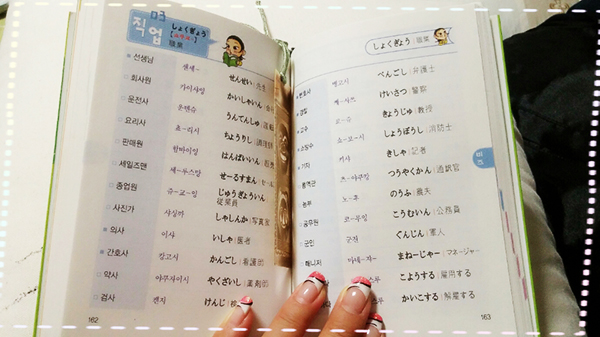 03
직업
しょくぎょう
[쇼쿠교-]
職業
선생님 센세- せんせい|先生
회사원 카이샤잉 かいしゃいん|会
운전사 운텐슈 うんてんしゅ|運転
요리사 쵸-리시 ちょうりし|調理師
판매원 함바이잉 はんばいいん|販売
세일즈맨 세-루스망 せーるすまん|セール
종업원 쥬-교-잉 じゅうぎょういん
従業員
사진가 샤싱까 しゃしんか|写真家
의사 이샤 いしゃ|医者
간호사 캉고시 かんごし|看護師
약사 야쿠자이시 やくざいし|薬剤師
검사 켄지 けんじ|検
162
しょくぎょう|職業
변호사 벵고시 べんごし|弁護士
경찰 케-사츠 けいさつ|警察
교수 쿄-쥬 きょうじゅ|教授
소방수 쇼-보-시 しょうぼうし|消防士
기자 키샤 きしゃ|記者
통역관 츠-야쿠캉 つうやくかん|通訳官
농부 노-후 のうふ|農夫
공무원 코-무잉 こうむいん|公務員
군인 군진 ぐんじん|軍人
매니저 마네-쟈- まねーじゃー|マネージャー
こようする|雇用する
かいこする|解雇する
163